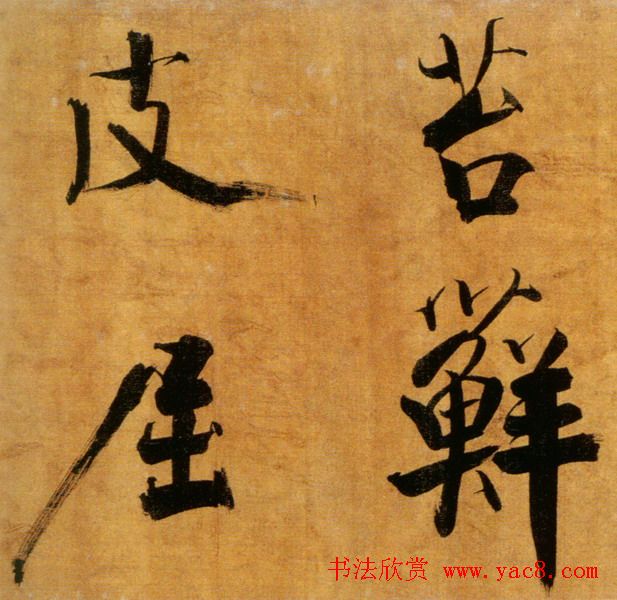 苔蘚
皮屈
书法欣赏 www.yac8.com